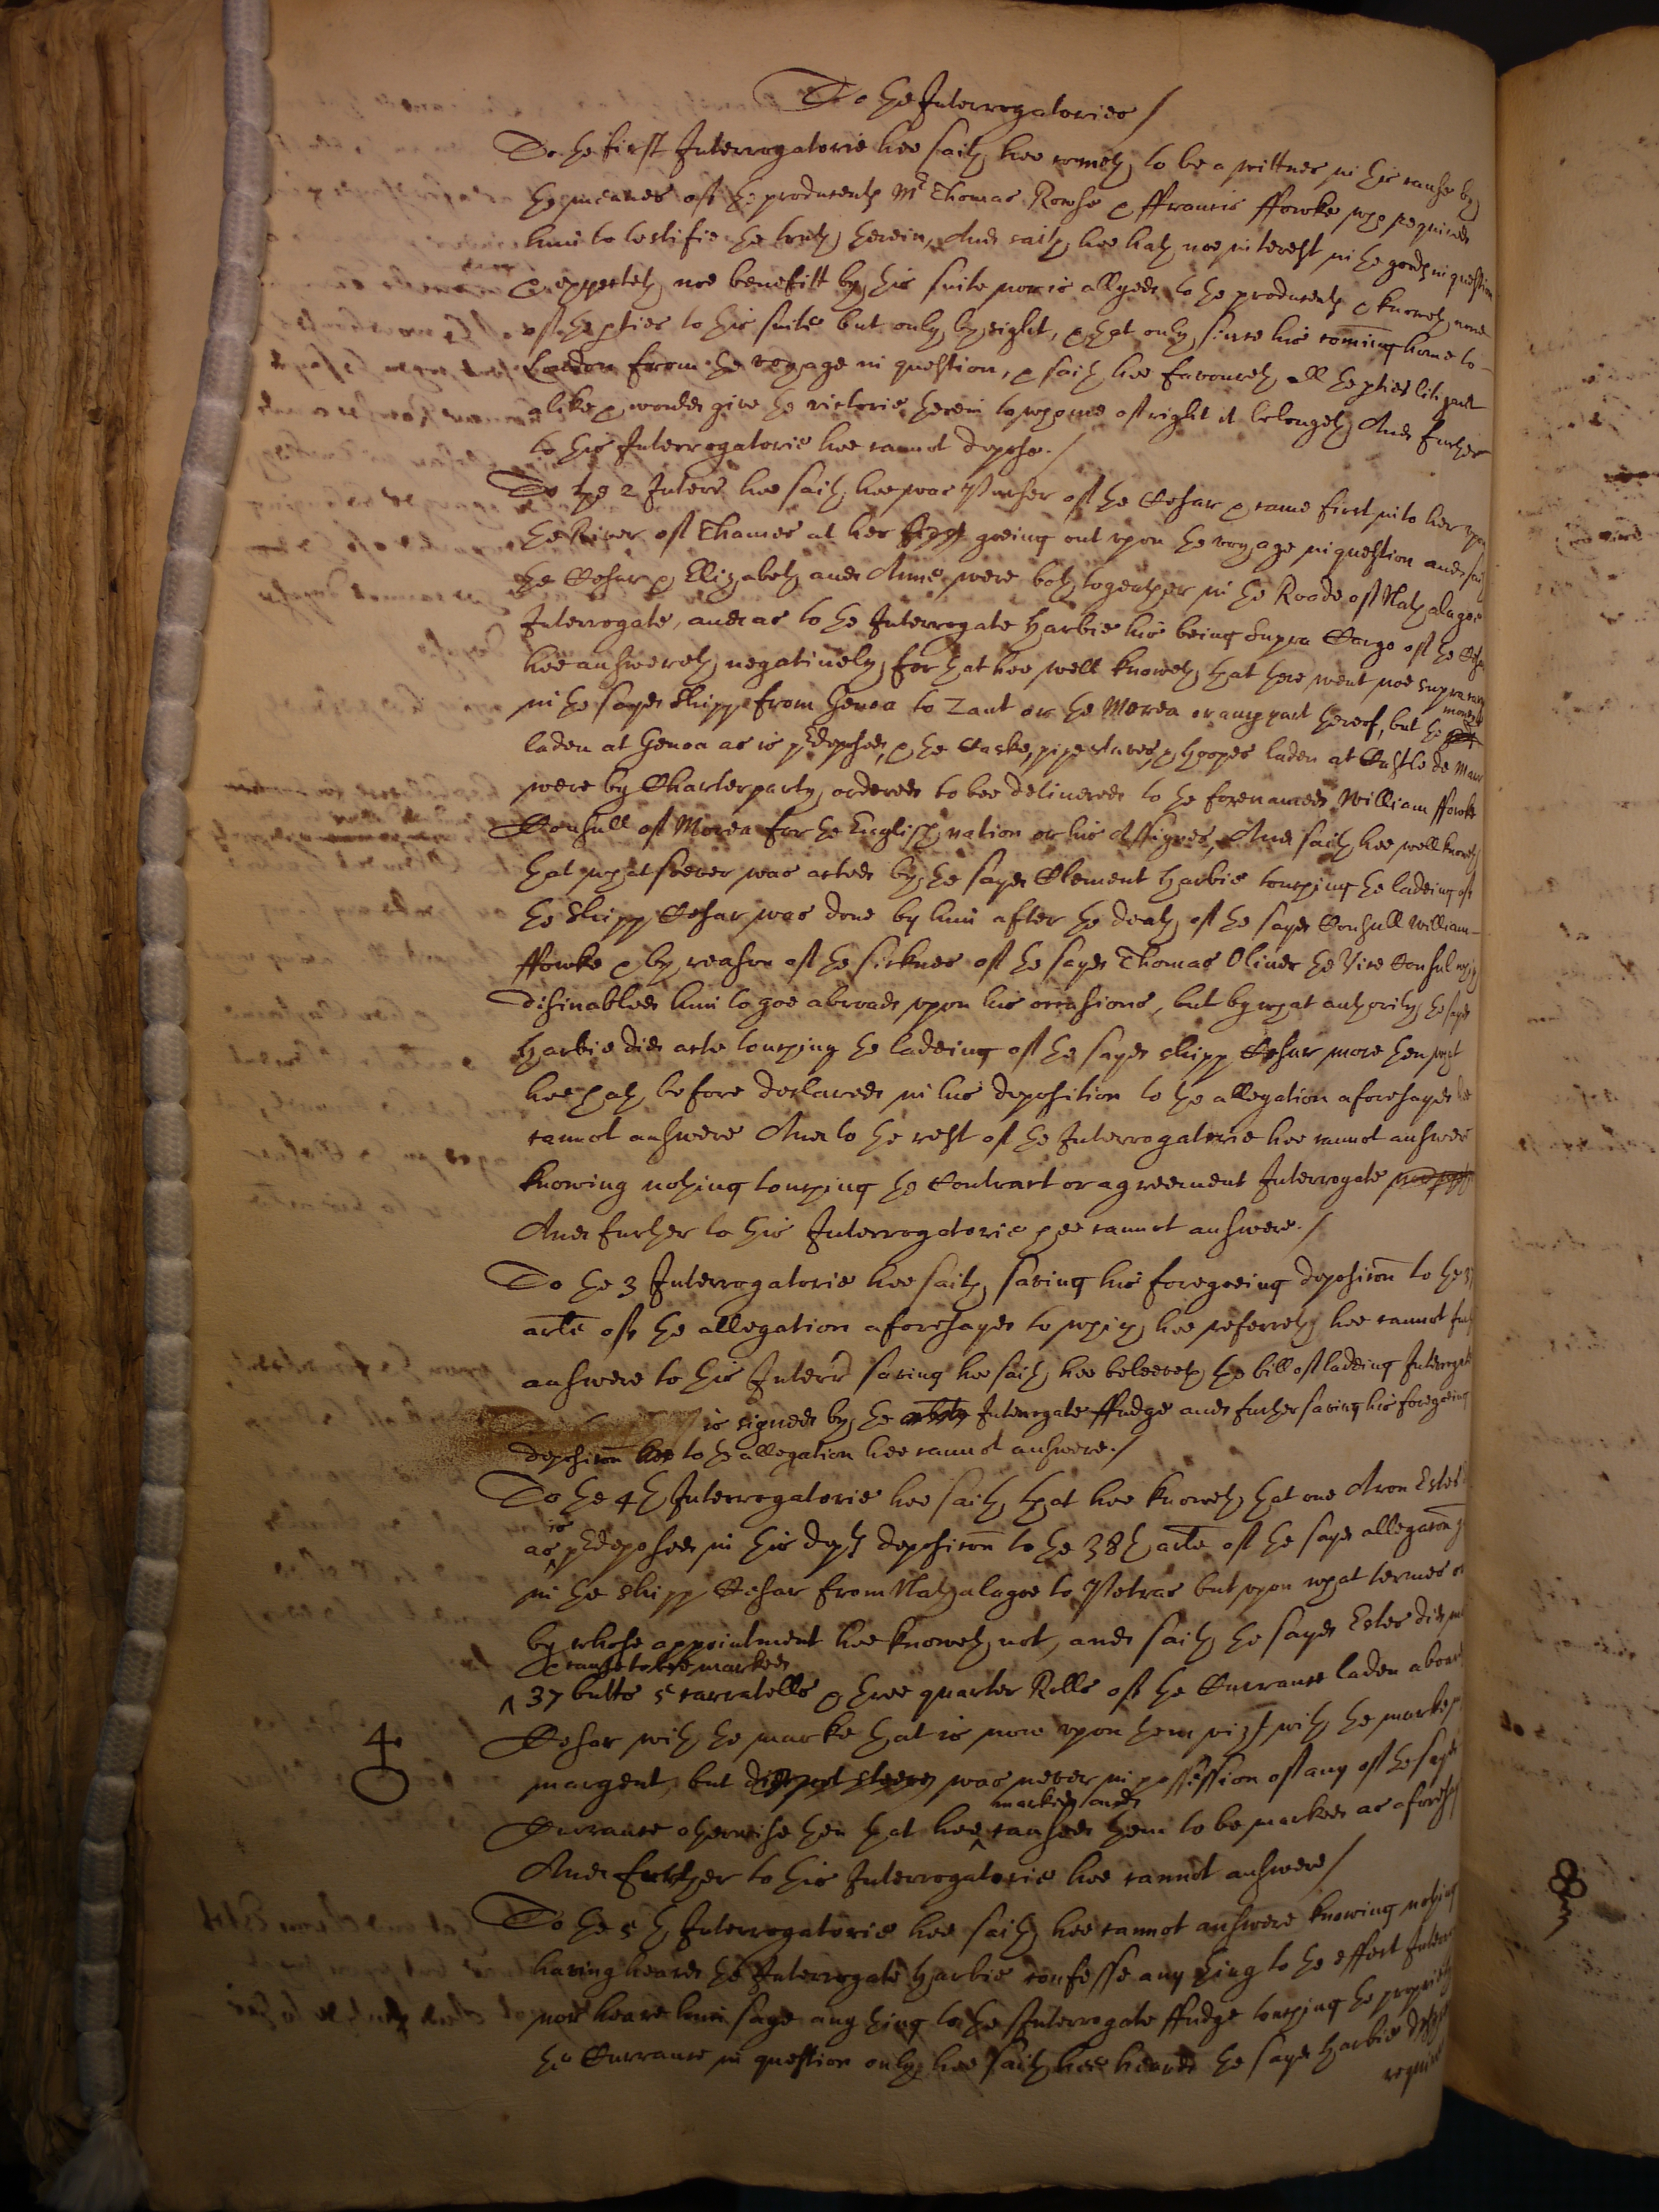 To the Interrogatories /
To the first Interrogatorie hee saith hee cometh to be a wittnes in this cause by
the meanes of the producents Mr Thomas Rowse & ffrancis ffowke who required
him to testifie the truth herein, And saith hee hath noe interest in the goods in question
& expecteth noe benefitt by this suite nor is allyed to the producents & knoweth none
of the pties to this suite but only by sight, & that only since his coming home to
London from the voyage in question, & saith hee favoureth all the pties litigant
alike & would give the victorie herein to whome of right it belongeth And further
to this Interrogatorie hee cannot depose. /
To the 2 Interr hee saith hee was Purser of the Cesar & came first into her upon
the River of Thames at her goeing out upon the voyage in question and saith
the Cesar & Elizabeth and Anne were both together in the Roade of Nathalagoe
Interrogate, and as to the Interrogate Harbie his being Supra Cargo of the Cesar
hee answereth negatively, for that hee well knoweth that there went noe Supra cargo
in the sayd shipp from Genoa to Zant or the Morea or any part thereof, but the moneys
laden at Genoa as is predeposed, & the Caske, pipestaves & hoopes laden at Castle de Mare
were by Charterparty ordered to bee delivered to the forenamed William ffowke
Consull of Morea for the English nation or his Assignes, And saith hee well knoweth
that whatsoever was acted by the sayd Clement Harbie touching the ladeing of
the shipp Cesar was done by him after the death of the sayd Consull William
ffowke & by reason of the sicknes of the sayd Thomas Oliver the Vice Consul which
disinabled him to goe abroad upon his occasions, but by what authority the sayd
Harbie did acte touching the ladeing of the sayd shipp Cesar more then what
hee hath before declared in his deposition to the allegation aforesayd hee
cannot answere And to the rest of the Interrogatorie hee cannot answer
knowing nothing touching the Contract or agreement Interrogate
And further to this Interrogatorie hee cannot answere. /
To the 3 Interrogatorie hee saith saving his foregoeing deposicon to the
arle of the allegation aforesayd to which hee referreth hee cannot further
answere to this Interr saving hee saith hee beleeveth the bill of ladeing Interrogate
is signed by the Interrogate ffudge and further saving his foregoeing
deposicon to the allegation hee cannot answere. /
To the 4th Interrogatorie hee saith that hee knoweth that one Aron Estes
as is predeposed in his deposicon to the 38th arle of the sayd allegacon
in the shipp Cesar from Nathalagoe to Petras but upon what termes or
by whose appointment hee knoweth not, and saith the sayd Estes did
& cause to bee marked
37 butts 5 carratells & three quarter Rolls of the Currance laden aboard
Cesar with the marke that is now upon them vizt with the marke
4 margent, but was never in possession of any of the sayd
marked and
Currance otherwise then that hee caused them to be marked as aforesayd
And further to this Interrogatorie hee cannot answere /
To the 5th Interrogatorie hee saith hee cannot answere knowing nothing
having heard the Interrogate Harbie confesse any thing to the effect Interr
nor heare him saye any thing to the Interrogate ffudge touching the propriety
the Currance in question only hee saith hee heard the sayd Harbie
require